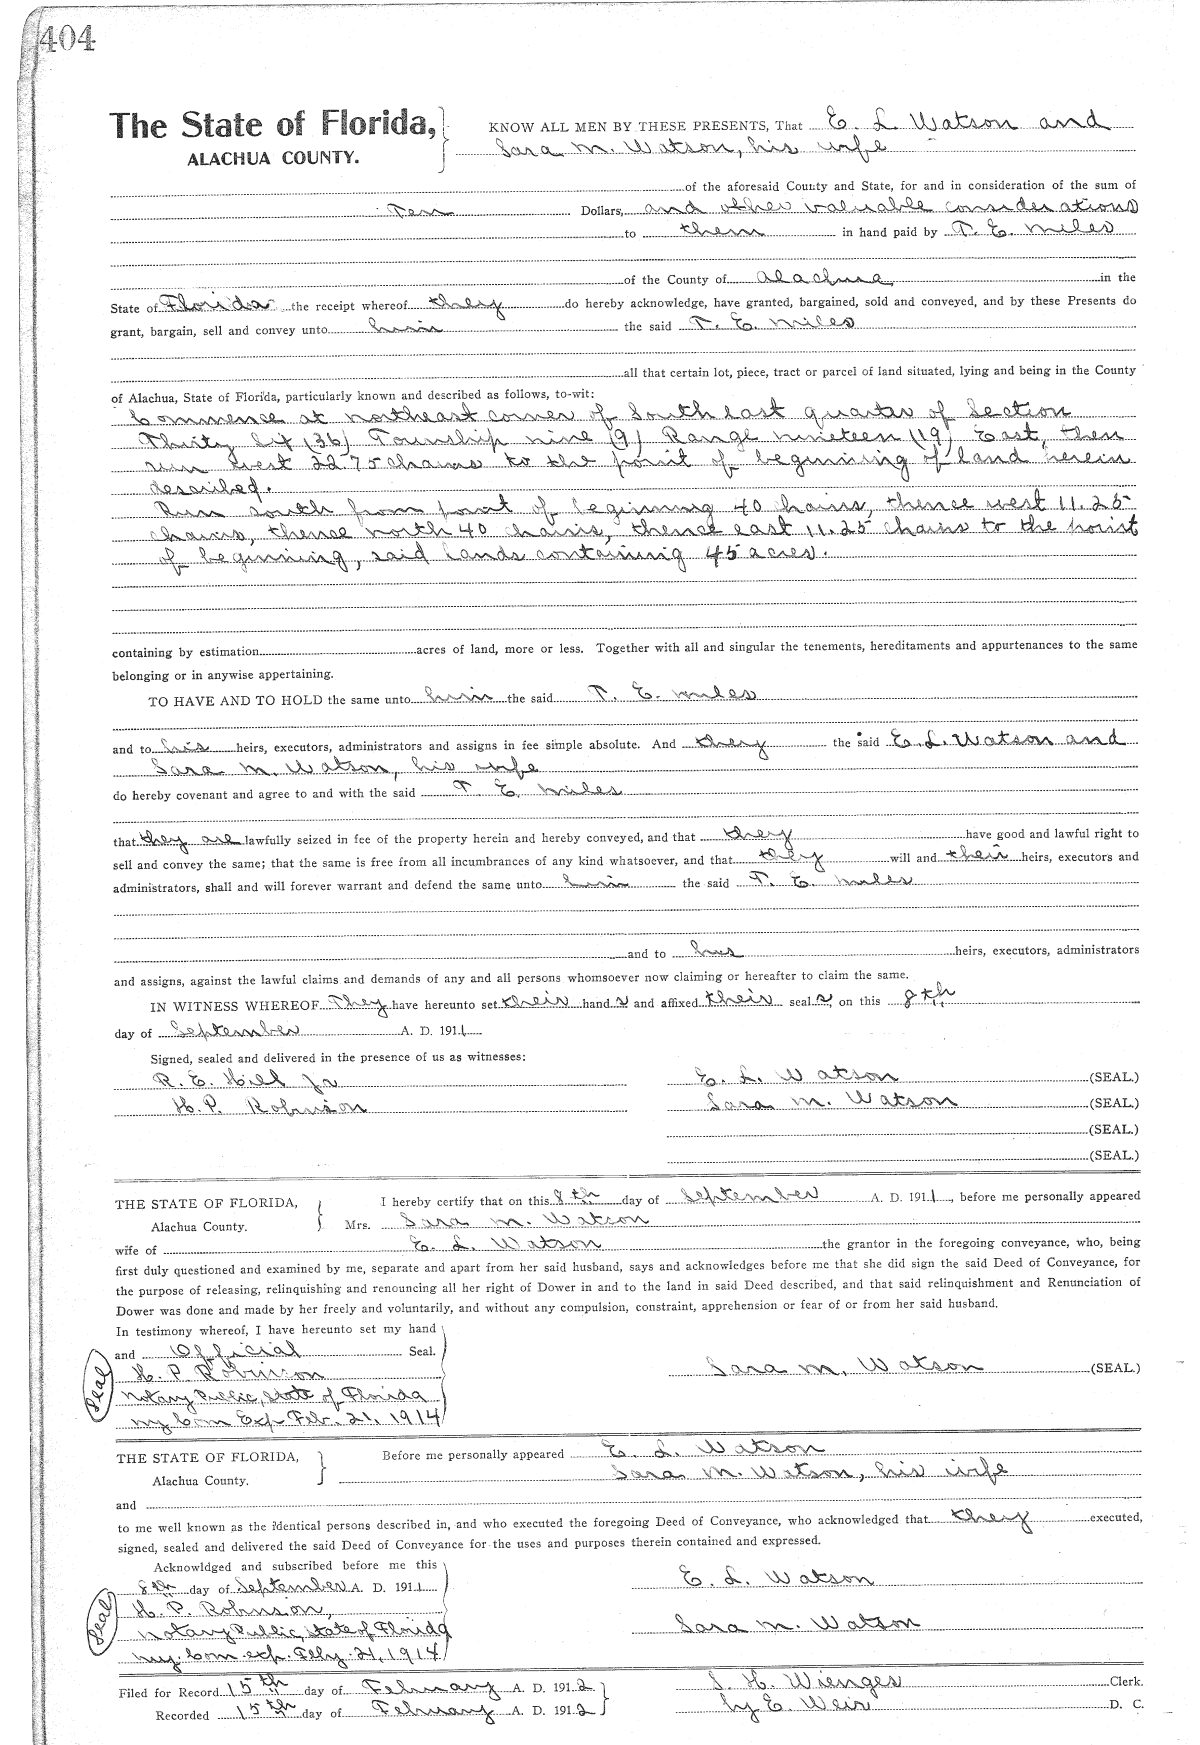 404
The State of Florida, KNOW ALL MEN BY THESE PRESENTS, That E. L Watson and
ALACHUA COUNTY. Sara M. Watson, his wife
of the aforesaid County and State, for and in consideration of the sum of
Ten Dollars, and other valuable considerations
to them in hand paid by T. E. Miles
of the County of Alachua, in the
State of Florida the receipt whereof they do hereby acknowledge, have granted, bargained, sold and conveyed, and by these Presents do
grant, bargain, sell and convey unto him the said T. E. Miles
all that certain lot, piece, tract or parcel of land situated, lying and being in the County
of Alachua, State of Florida, particularly known and described as follows, to-wit:
Commence at northeast corner of South East quarter of Section
Thirty Six (36) Township nine (9) Range nineteen (19) East, then
run west 22.75 chains to the point of beginning of land herein
described.
Run south from point of beginning 40 chains, thence west 11.25
chains, thence north 40 chains, thence east 11.25 chains to the point
of beginning, said lands containing 45 acres.
containing by estimation acres of land, more or less. Together with all and singular the tenements, hereditaments and appurtenances to the same
belonging or in anywise appertaining.
TO HAVE AND TO HOLD the same unto him the said T. E. Miles
and to his heirs, executors, administrators and assigns in fee simple absolute. And they the said E. L. Watson and
Sara M. Watson, his wife
do hereby covenant and agree to and with the said T. E. Miles
that they are lawfully seized in fee of the property herein and hereby conveyed, and that they have good and lawful right to
sell and convey the same; that the same is free from all incumbrances of any kind whatsoever, and that they will and their heirs, executors and
administrators, shall and will forever warrant and defend the same unto him the said T. E. Miles
and to his heirs, executors, administrators
and assigns, against the lawful claims and demands of any and all persons whomsoever now claiming or hereafter to claim the same.
IN WITNESS WHEREOF They have hereunto set their hand s and affixed their seal s, on this 8th
day of September A. D. 1911
Signed, sealed and delivered in the presence of us as witnesses:
R. E. Hill Jr E. L. Watson (SEAL.)
H. P. Robinson Sara M. Watson (SEAL.)
(SEAL.)
(SEAL.)
THE STATE OF FLORIDA, I hereby certify that on this 8th day of September A. D. 1911, before me personally appeared
Alachua County. Mrs. Sara M. Watson
wife of E. L. Watson the grantor in the foregoing conveyance, who, being
first duly questioned and examined by me, separate and apart from her said husband, says and acknowledges before me that she did sign the said Deed of Conveyance, for
the purpose of releasing, relinquishing and renouncing all her right of Dower in and to the land in said Deed described, and that said relinquishment and Renunciation of
Dower was done and made by her freely and voluntarily, and without any compulsion, constraint, apprehension or fear of or from her said husband.
In testimony whereof, I have hereunto set my hand
and Official Seal.
Seal H. P. Robinson Sara M. Watson (SEAL.)
Notary Public, State of Florida
my Com Exp Feb. 21, 1914
THE STATE OF FLORIDA, Before me personally appeared E. L. Watson
Alachua County. Sara M. Watson, his wife
and
to me well known as the identical persons described in, and who executed the foregoing Deed of Conveyance, who acknowledged that they executed,
signed, sealed and delivered the said Deed of Conveyance for the uses and purposes therein contained and expressed.
Acknowldged and subscribed before me this
8th day of September A. D. 1911 E. L. Watson
Seal H. P. Robinson,
Notary Public, State of Florida Sara M. Watson
my. Com. exp. Feby. 21, 1914
Filed for Record 15th day of February A. D. 1912 S. H. Wienges Clerk.
Recorded 15th day of February A. D. 1912 by E. Weir D. C.